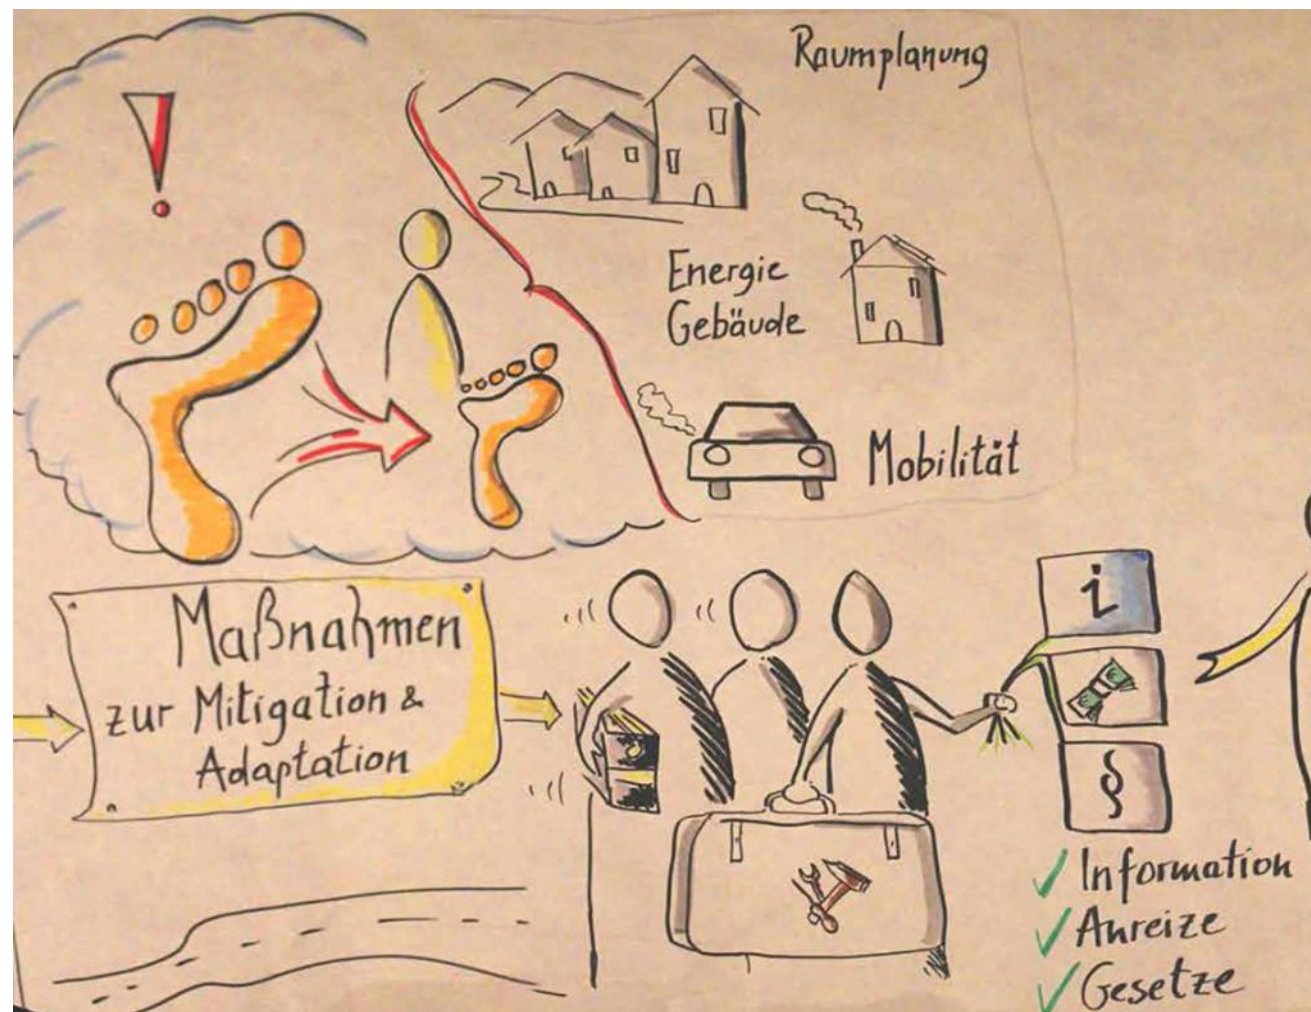 !
Raumplanung
Energie
Gebäude
Mobilität
Maßnahmen
zur Mitigation &
Adaptation
i
§
✓ Information
✓ Anreize
✓ Gesetze